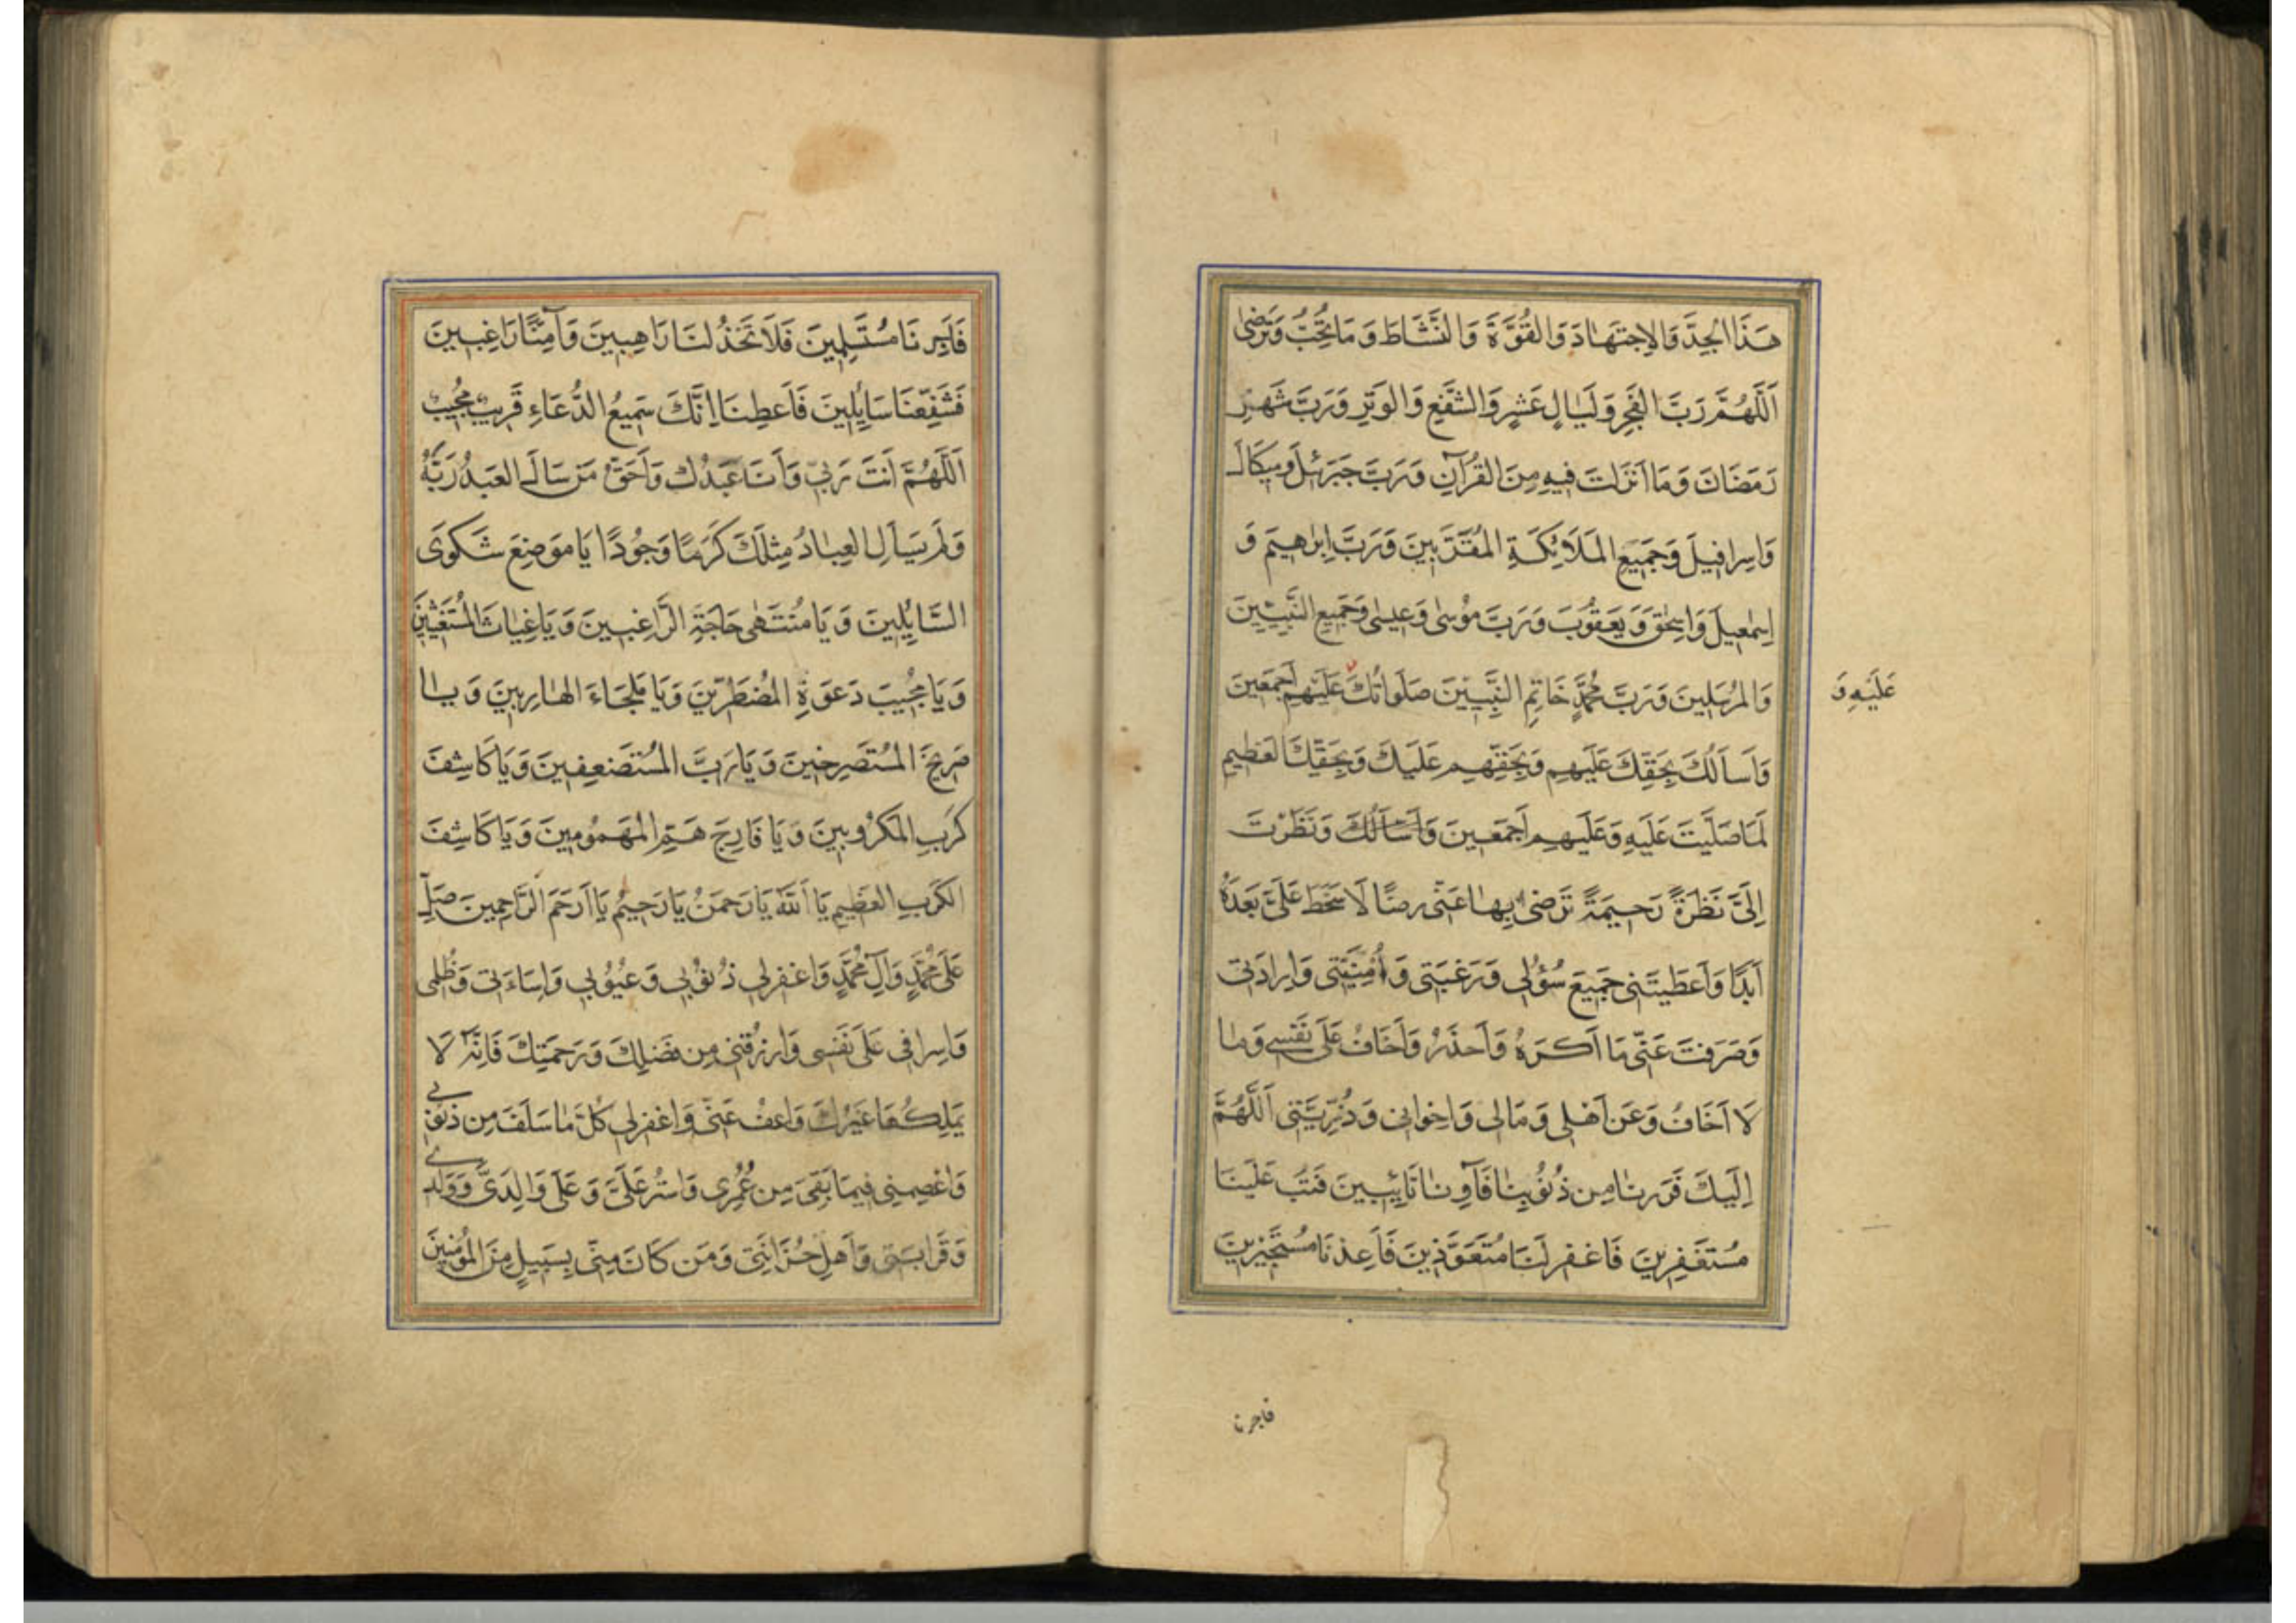 هَذَا الْجِدَّ وَالاِجتِهَادَ وَالقُوَّةَ وَالنَّشَاطَ وَمَا تُحِبُّ وَتَرضىٰ
اَللّهُمَّ رَبَّ الفَجرِ وَلَيَالٍ عَشرٍ وَالشَّفعِ وَالوَترِ وَرَبَّ شَهرِ
رَمَضَانَ وَمَا اَنزَلتَ فِيهِ مِنَ القُرآنِ وَرَبَّ جَبرَئِلَ وَمِيكَالَ
وَاِسرافِيلَ وَجَمِيعِ المَلَائِكَةِ المُقَرَّبِينَ وَرَبَّ اِبرٰهِيمَ وَ
اِسمٰعِيلَ وَاِسحٰقَ وَيَعقُوبَ وَرَبَّ مُوسىٰ وَعِيسىٰ وَجَمِيعِ النَّبِيّينَ
وَالمُرسَلِينَ وَرَبَّ مُحَمَّدٍ خَاتِمِ النَّبِيّينَ صَلَوَاتُكَ عَلَيهِم اَجمَعِينَ
عَلَيهِ وَ
وَاَسأَلُكَ بِحَقِّكَ عَلَيهِم وَبِحَقِّهِم عَلَيكَ وَبِحَقِّكَ العَظِيمِ
لَمَّا صَلَّيتَ عَلَيهِ وَعَلَيهِم اَجمَعِينَ وَاَسأَلُكَ وَنَظَرْتَ
اِلَىَّ نَظرَةً رَحِيمَةً تَرضىٰ بِهَا عَنّى رِضًا لَا سَخَطَ عَلَىَّ بَعدَهُ
اَبَدًا وَاَعطَيتَنى جَمِيعَ سُؤلِى وَرَغبَتِى وَاُمنِيَّتِى وَاِرادَتِى
وَصَرَفتَ عَنّى مَا اَكرَهُ وَاَحذَرُ وَاَخَافُ عَلىٰ نَفسِى وَمَا
لَا اَخَافُ وَعَن اَهلِى وَمَالِى وَاِخوانِى وَذُرِّيَّتِى اَللّهُمَّ
اِلَيكَ فَرَرنَا مِن ذُنُوبِنَا فَآوِنَا تَائِبِينَ فَتُب عَلَينَا
مُستَغفِرِينَ فَاغفِر لَنَا مُتَعَوِّذِينَ فَاَعِذنَا مُستَجِيرِينَ
فاجرنا
فَاَجِرنَا مُستَسلِمِينَ فَلَا تَخذُلنَا رَاهِبِينَ وَآمِنَّا رَاغِبِينَ
فَشَفِّعنَا سَايِلِينَ فَاَعطِنَا اِنَّكَ سَمِيعُ الدُّعَاءِ قَرِيبٌ مُجِيبٌ
اَللّهُمَّ اَنتَ رَبّى وَاَنَا عَبدُكَ وَاَحَقُّ مَن سَاَلَ العَبدُ رَبَّهُ
وَلَم يَسأَلِ العِبَادُ مِثلَكَ كَرَمًا وَجُودًا يَا مَوضِعَ شَكوَى
السَّايِلِينَ وَيَا مُنتَهىٰ حَاجَةِ الرَّاغِبِينَ وَيَا غِيَاثَ المُستَغِيثِينَ
وَيَا مُجِيبَ دَعوَةِ المُضطَرّينَ وَيَا مَلجَاءَ الهَارِبِينَ وَيَا
صَرِيخَ المُستَصرِخِينَ وَيَا رَبَّ المُستَضعَفِينَ وَيَا كَاشِفَ
كَربِ المَكرُوبِينَ وَيَا فَارِجَ هَمِّ المَهمُومِينَ وَيَا كَاشِفَ
الكَربِ العَظِيمِ يَا اَللّهُ يَا رَحمَنُ يَا رَحِيمُ يَا اَرحَمَ الرَّاحِمِينَ صَلِّ
عَلى مُحَمَّدٍ وَآلِ مُحَمَّدٍ وَاغفِر لِى ذُنُوبِى وَعُيُوبِى وَاِسَاءَتِى وَظُلمِى
وَاِسرافِى عَلىٰ نَفسِى وَارزُقنِى مِن فَضلِكَ وَرَحمَتِكَ فَاِنَّهُ لَا
يَملِكُهَا غَيرُكَ وَاعفُ عَنّى وَاغفِر لِى كُلَّ مَا سَلَفَ مِن ذُنُوبِى
وَاعصِمنِى فِيمَا بَقِىَ مِن عُمُرِى وَاستُر عَلَىَّ وَعَلىٰ وَالِدَىَّ وَوَلَدِى
وَقَرَابَتِى وَاَهلِ حُزَانَتِى وَمَن كَانَ مِنّى بِسَبِيلٍ مِنَ المُؤمِنِينَ